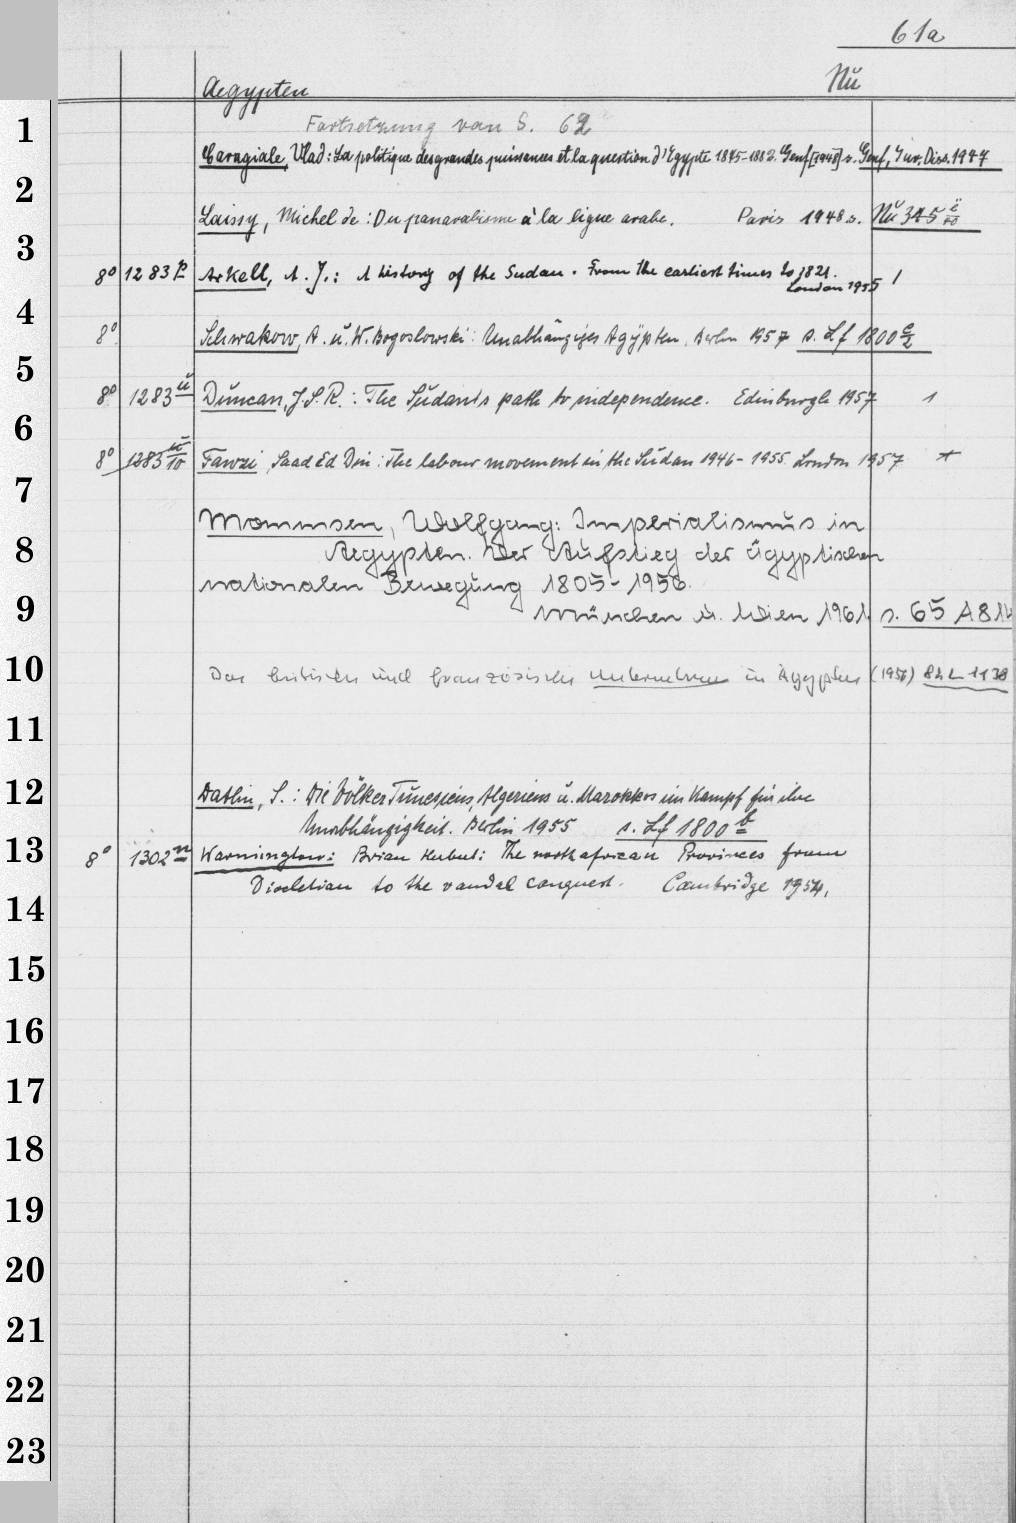 61a
Aegypten Nü
1
Fortsetzung von S. 62
Caragiale, Vlad: La politique des grandes puissances et la question d'Egypte 1875-1882. Genf [1948] s. Genf, Jur. Diss. 1947
2
Laissy, Michel de: Du panarabisme à la ligue arabe. Paris 1948 s. Nü 345
3
8° 1283 p Arkell, A. J.: A history of the Sudan. From the earliest times to 1821.
London 1955 1
4
8° Schwakow, A. u. W. Bogoslowski: Unabhängiges Ägypten, Berlin 1957 s. Lf 1800 a/2
5
8° 1283 ü Duncan, J. S. R.: The Sudan's path to independence. Edinburgh 1957 1
6
8° 1283 ü/10 Fawzi, Saad Ed Din: The labour movement in the Sudan 1946-1955 London 1957 +
7
Mommsen, Wolfgang: Imperialismus in
8
Aegypten. Der Aufstieg der ägyptischen
nationalen Bewegung 1805-1956.
9
München u. Wien 1961 s. 65 A 814
10
Das britische und französische Unternehmen in Ägypten (1956) 8
11
12
Datlin, S.: Die Völker Tunesiens, Algeriens u. Marokkos im Kampf für ihre
Unabhängigkeit. Berlin 1955 s. Lf 1800 b
13
8° 1302 n Warmington: Brian Herbert: The north african Provinces from
Diocletian to the vandal conquest. Cambridge 1954,
14
15
16
17
18
19
20
21
22
23